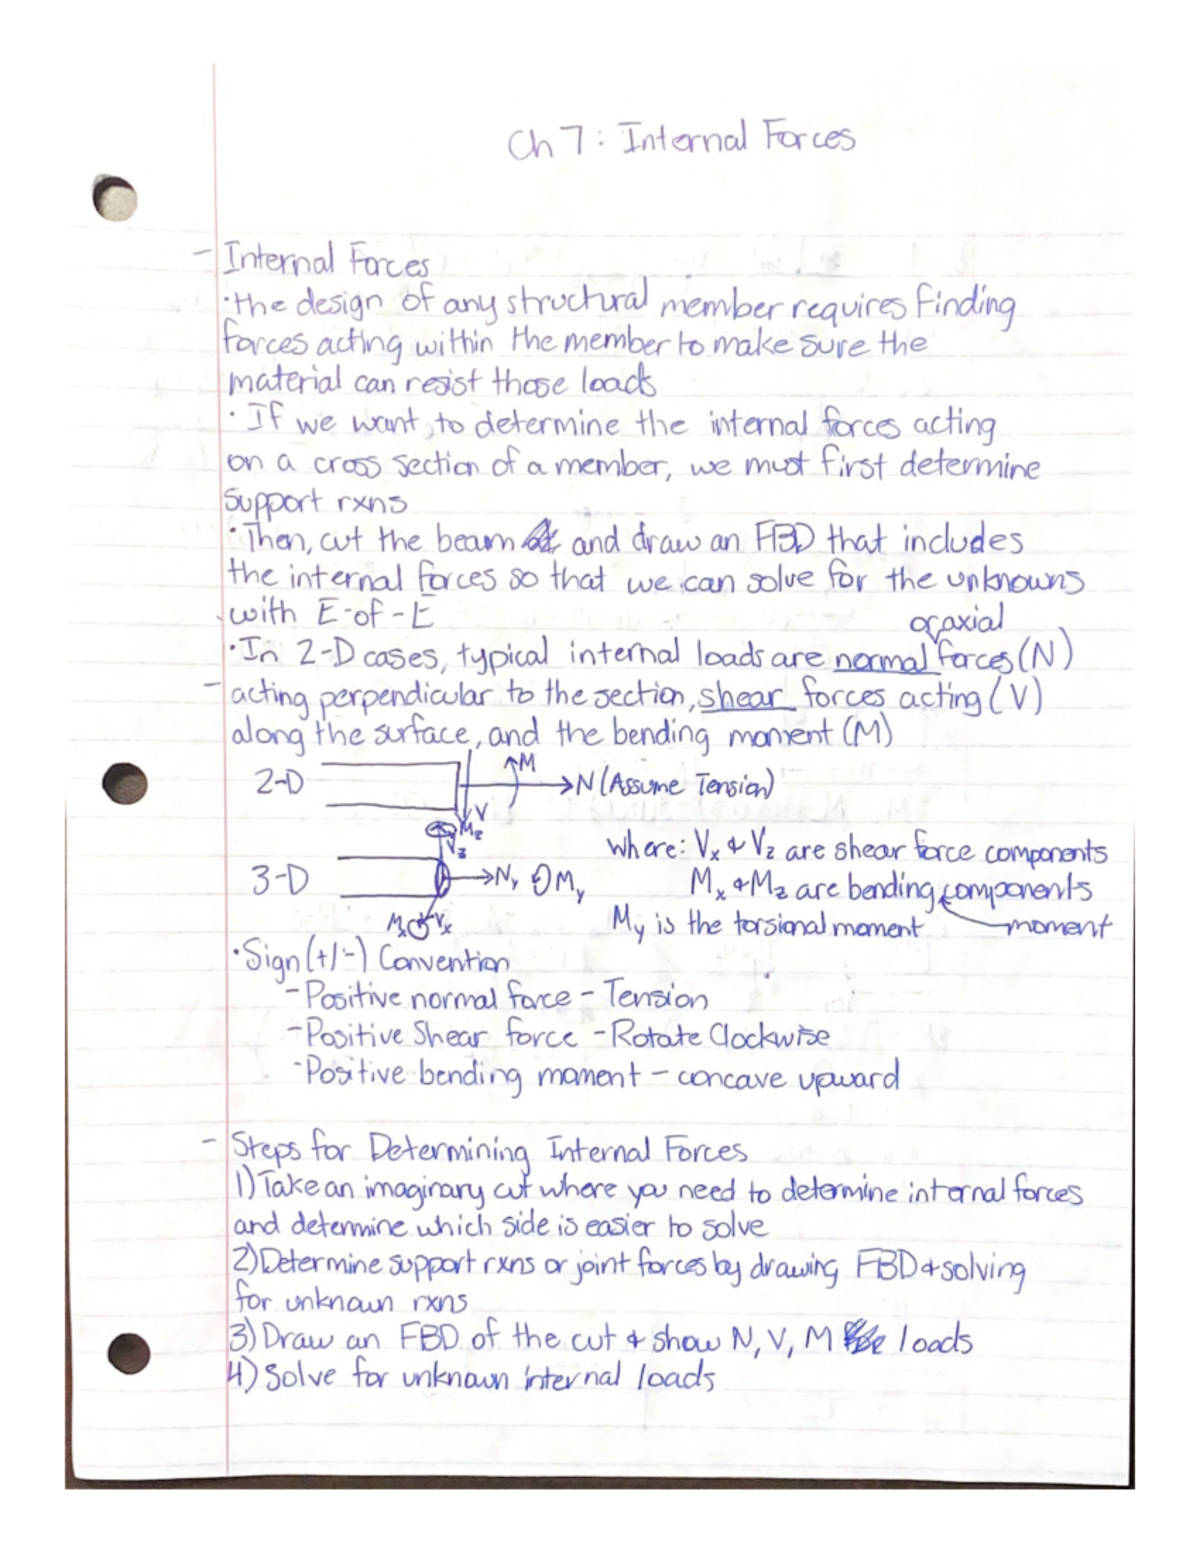 Ch 7: Internal Forces
- Internal Forces
· the design of any structural member requires finding
forces acting within the member to make sure the
material can resist those loads
· If we want to determine the internal forces acting
on a cross section of a member, we must first determine
support rxns
· Then, cut the beam and draw an FBD that includes
the internal forces so that we can solve for the unknowns
with E-of-E
or axial
· In 2-D cases, typical internal loads are normal forces (N)
- acting perpendicular to the section, shear forces acting (V)
along the surface, and the bending moment (M)
2-D M N (Assume Tension)
V
Mz
Vz
where: Vx & Vz are shear force components
3-D Ny My Mx & Mz are bending components
moment
Mx Vx My is the torsional moment
· Sign (+/-) Convention
- Positive normal force - Tension
- Positive Shear force - Rotate Clockwise
- Positive bending moment - concave upward
- Steps for Determining Internal Forces
1) Take an imaginary cut where you need to determine internal forces
and determine which side is easier to solve
2) Determine support rxns or joint forces by drawing FBD & solving
for unknown rxns
3) Draw an FBD of the cut & show N, V, M loads
4) Solve for unknown internal loads